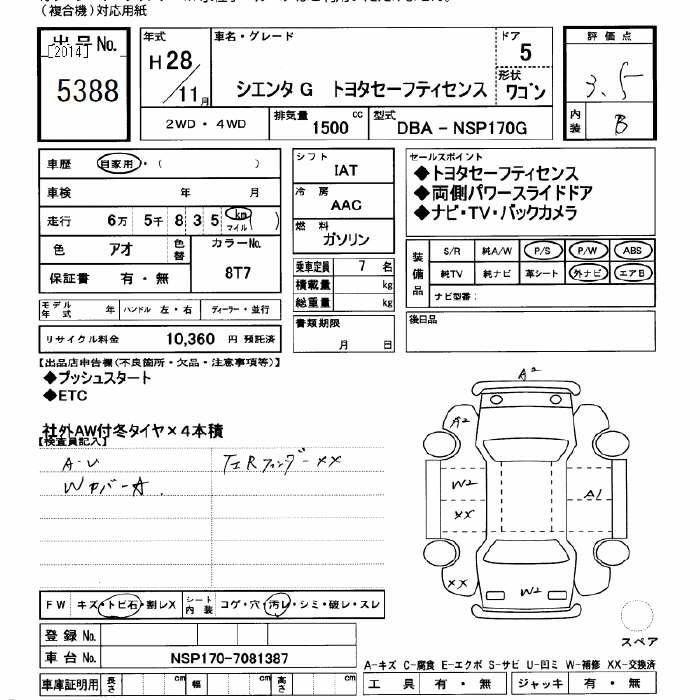 （複合機）対応用紙
出品No.
[2014]
5388
年式
H28/11月
車名・グレード
シエンタG トヨタセーフティセンス
ドア
5
形状
ワゴン
評価点
3.5
内装
B
2WD・4WD
排気量
1500 cc
型式
DBA - NSP170G
車歴 自家用・( )
車検 年 月
走行 6万 5千 8 3 5 km マイル ( )
色 アオ 色替
カラーNo.
8T7
保証書 有・無
モデル年式 年 ハンドル 左・右 ディーラー・並行
リサイクル料金 10,360 円 預託済
シフト
IAT
冷房
AAC
燃料
ガソリン
乗車定員 7 名
積載量 kg
総重量 kg
書類期限
月 日
セールスポイント
◆トヨタセーフティセンス
◆両側パワースライドドア
◆ナビ・TV・バックカメラ
装備品
S/R 純A/W P/S P/W ABS
純TV 純ナビ 革シート 外ナビ エアB
ナビ型番:
後日品
【出品店申告欄(不良箇所・欠品・注意事項等)】
◆プッシュスタート
◆ETC
社外AW付冬タイヤ×4本積
【検査員記入】
A-U
Wカバー-A
TERフェンダー-XX
A2
A2
W2
XX
A1
XX
W2
FW キズ・トビ石・割レX
シート内装 コゲ・穴・汚レ・シミ・破レ・スレ
登録No.
車台No. NSP170-7081387
車庫証明用 長さ cm 幅 cm 高さ cm
スペア
A-キズ C-腐食 E-エクボ S-サビ U-凹ミ W-補修 XX-交換済
工具 有・無 ジャッキ 有・無